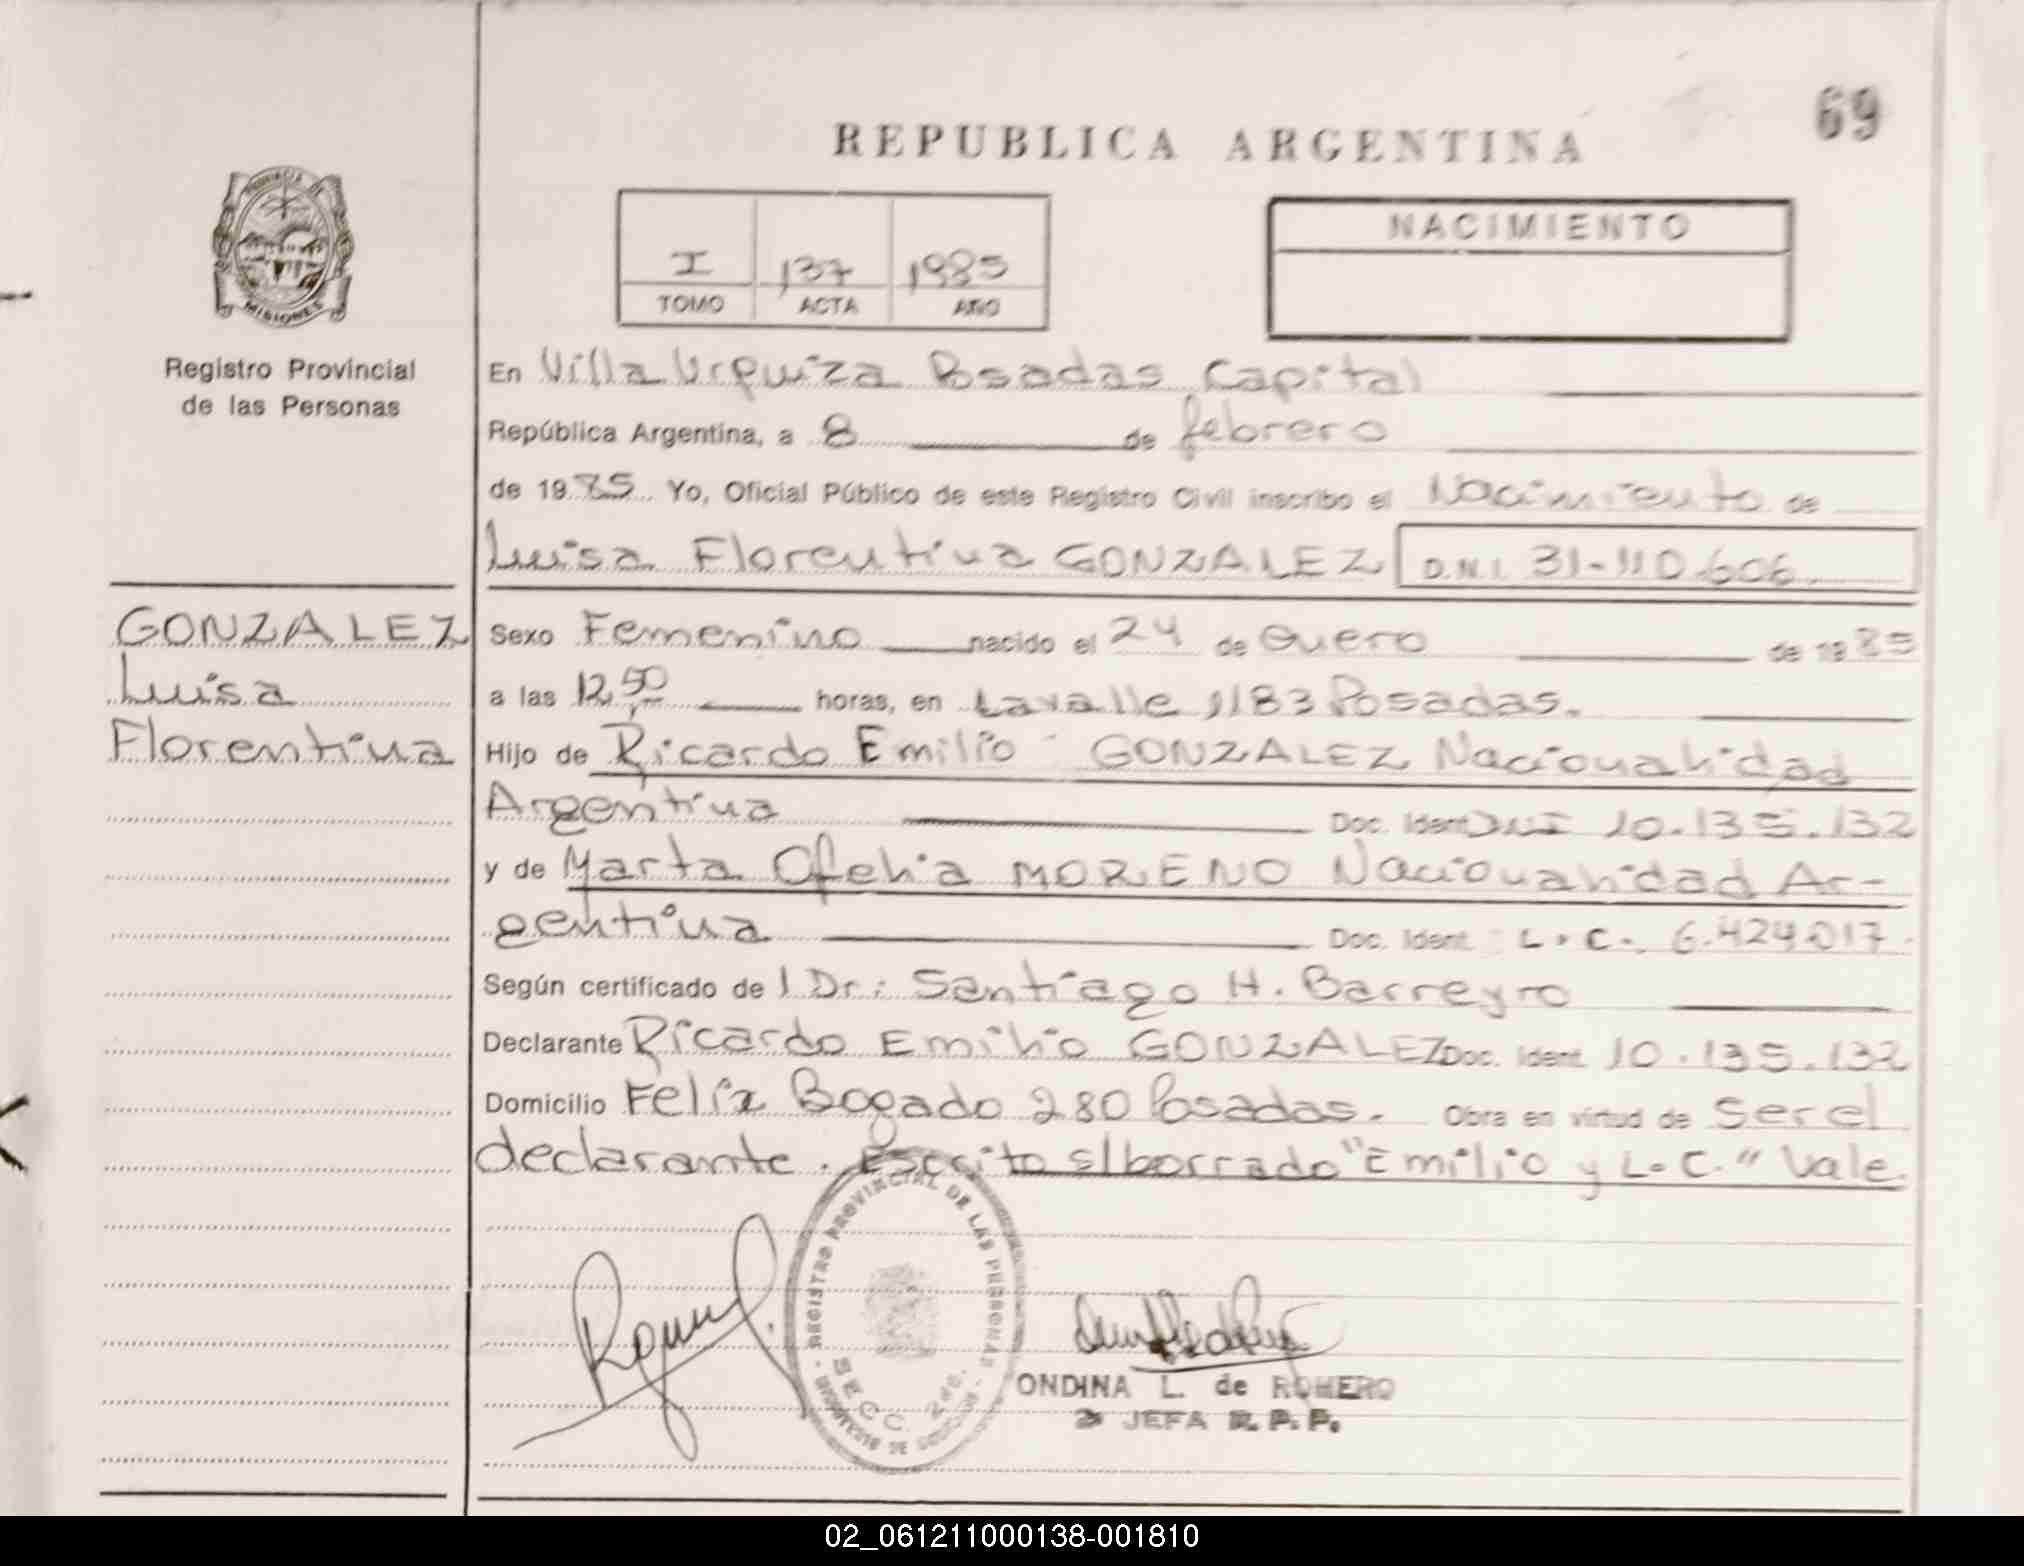 69
REPUBLICA ARGENTINA
PROVINCIA DE
MISIONES
Registro Provincial
de las Personas
I 137 1985
TOMO ACTA AÑO
NACIMIENTO
En Villa Urquiza Posadas Capital
República Argentina, a 8 de febrero
de 1985 Yo, Oficial Público de este Registro Civil inscribo el Nacimiento de
Luisa Florentina GONZALEZ D.N.I. 31-110.606
GONZALEZ
Luisa
Florentina
Sexo Femenino nacido el 24 de enero de 1985
a las 12,50 horas, en Lavalle 1183 Posadas.
Hijo de Ricardo Emilio GONZALEZ Nacionalidad
Argentina Doc. Ident DNI 10.135.132
y de Marta Ofelia MORENO Nacionalidad Ar-
gentina Doc. Ident. L.C. 6.424.017.
Según certificado de l Dr: Santiago H. Barreyro
Declarante Ricardo Emilio GONZALEZ Doc. Ident. 10.135.132
Domicilio Felix Bogado 280 Posadas. Obra en virtud de Ser el
declarante. Escrito s/borrado "Emilio y L.C." Vale.
REGISTRO PROVINCIAL DE LAS PERSONAS
SECC. 2da.
ONDINA L. de ROMERO
JEFA R.P.P.
02_061211000138-001810